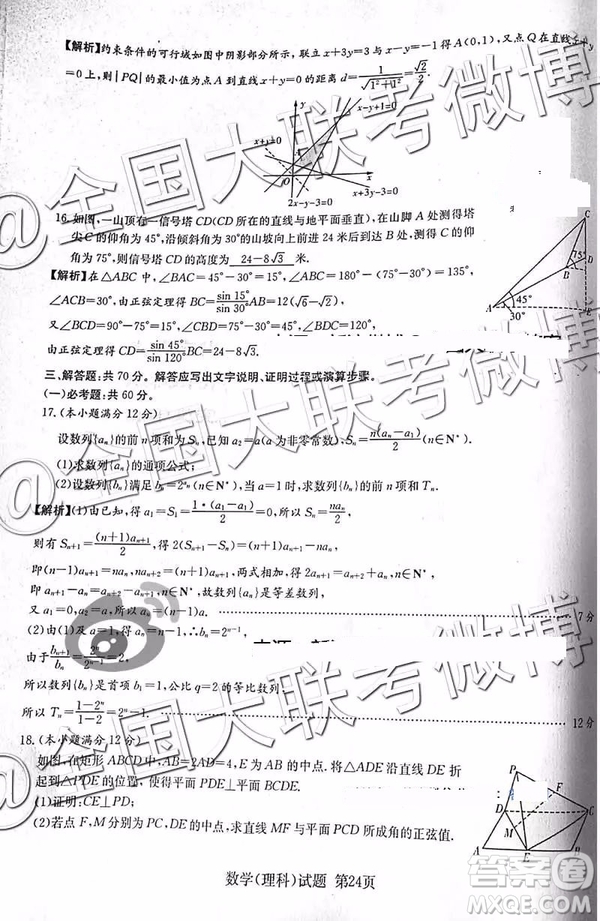 【解析】约束条件的可行域如图中阴影部分所示，联立x+3y=3与x-y=-1得A(0,1)，又点Q在直线x+y
=0上，则|PQ|的最小值为点A到直线x+y=0的距离d=1/√(1²+1²)=√2/2.
y
x-y+1=0
x+y=0
A
O
x
2x-y-3=0
x+3y-3=0
16.如图，一山顶有一信号塔CD(CD所在的直线与地平面垂直)，在山脚A处测得塔
尖C的仰角为45°，沿倾斜角为30°的山坡向上前进24米后到达B处，测得C的仰
角为75°，则信号塔CD的高度为 24-8√3 米.
【解析】在△ABC中，∠BAC=45°-30°=15°，∠ABC=180°-(75°-30°)=135°，
∠ACB=30°，由正弦定理得BC=sin 15°/sin 30° AB=12(√6-√2)，
又∠BCD=90°-75°=15°，∠CBD=75°-30°=45°，∠BDC=120°，
由正弦定理得CD=sin 45°/sin 120° BC=24-8√3.
C
75°
B
D
45°
30°
A
E
三、解答题：共70分。解答应写出文字说明、证明过程或演算步骤。
(一)必考题：共60分。
17.(本小题满分12分)
设数列{aₙ}的前n项和为Sₙ，已知a₂=a(a为非零常数)，Sₙ=n(aₙ-a₁)/2(n∈N*).
(1)求数列{aₙ}的通项公式；
(2)设数列{bₙ}满足bₙ=2^(aₙ)(n∈N*)，当a=1时，求数列{bₙ}的前n项和Tₙ.
【解析】(1)由已知，得a₁=S₁=1•(a₁-a₁)/2=0，所以Sₙ=naₙ/2，
则有Sₙ₊₁=(n+1)aₙ₊₁/2，得2(Sₙ₊₁-Sₙ)=(n+1)aₙ₊₁-naₙ，
即(n-1)aₙ₊₁=naₙ，所以naₙ₊₂=(n+1)aₙ₊₁，
即aₙ₊₂-aₙ₊₁=aₙ₊₁-aₙ，n∈N*，故{aₙ}是等差数列，
又a₁=0，a₂=a，所以aₙ=(n-1)a. 7分
(2)由(1)及a=1，得aₙ=n-1，∴bₙ=2ⁿ⁻¹，
由于bₙ₊₁/bₙ=2ⁿ/2ⁿ⁻¹=2，
所以数列{bₙ}是首项b₁=1，公比q=2的等比数列，
所以Tₙ=(1-2ⁿ)/(1-2)=2ⁿ-1. 12分
18.(本小题满分12分)
如图，在矩形ABCD中，AB=2AD=4，E为AB的中点，将△ADE沿直线DE折
起到△PDE的位置，使得平面PDE⊥平面BCDE.
(1)证明：CE⊥PD；
(2)若点F,M分别为PC,DE的中点，求直线MF与平面PCD所成角的正弦值.
P
F
D
C
M
A
E
B
数学(理科)试题 第24页
@全国大联考微博
@全国大联考微博
@全国大联考微博
答案圈
MXQE.COM